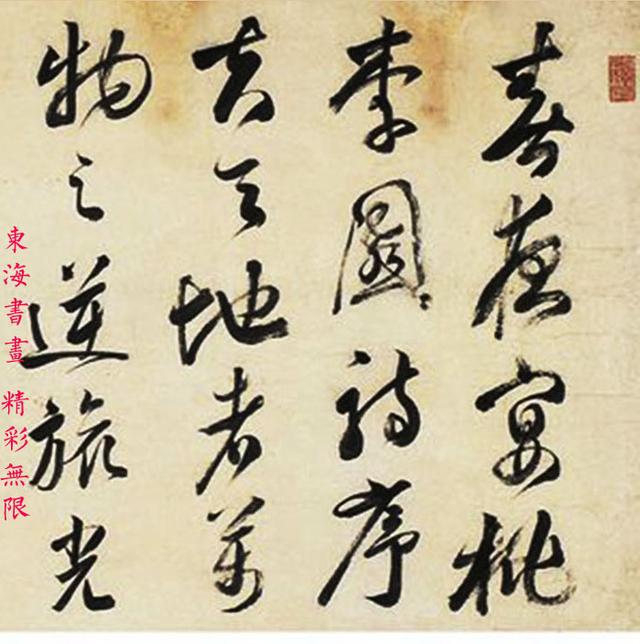 春夜宴桃
李園詩序
夫天地者萬
物之逆旅光
東海書畫 精彩無限